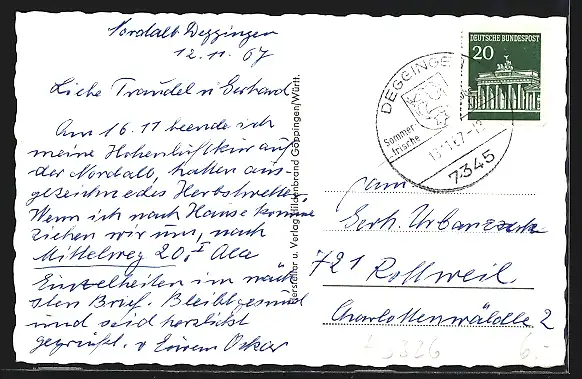 Nordalb Deggingen
12.11.67
Liebe Traudel u Gerhard
Am 16.11 beende ich
meine Höhenluftkur auf
der Nordalb, hatten aus-
gezeichnedes Herbstwetter
Wenn ich nach Hause komme
ziehen wir um, nach
Mittelweg 20, I Alle
Einzelheiten im näch
sten Brief. Bleibt gesund
und seid herzlichst
gegrüßt. v Eurem Oskar
Hersteller u. Verlag Hildenbrand Göppingen/Württ.
DEUTSCHE BUNDESPOST
20
DEGGINGEN
Sommer-
frische
7345
am
Gerh. Urbanzack
721 Rottweil
Charlottenwäldle 2
6.-